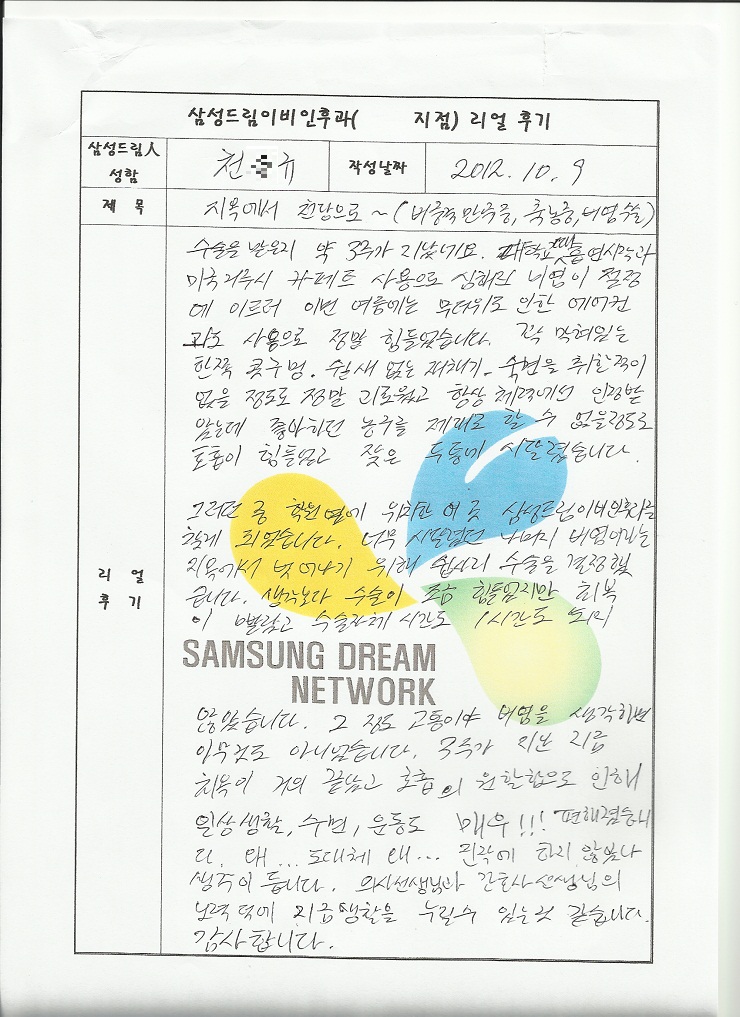 삼성드림이비인후과( 지점) 리얼 후기
삼성드림人 성함 천 규 작성날짜 2012. 10. 9
제 목 지옥에서 천당으로 ~ (비중격만곡증, 축농증, 비염수술)
리 얼 후 기
수술을 받은지 약 3주가 지났네요. 대학교때 흡연시작과
미국거주시 카페트 사용으로 심해진 비염이 절정
에 이르러 이번 여름에는 무더위로 인한 에어컨
과도 사용으로 정말 힘들었습니다. 꽉 막혀있는
한쪽 콧구멍. 쉴새 없는 재채기. 숙면을 취한적이
없을 정도로 정말 괴로웠고 항상 체력에선 인정받
았는데 좋아하던 농구를 제대로 할 수 없을정도로
호흡이 힘들었고 잦은 두통에 시달렸습니다.
그러던 중 학원옆에 위치한 이 곳 삼성드림이비인후과를
찾게 되었습니다. 너무 시달렸던 나머지 비염이라는
지옥에서 벗어나기 위해 쉽사리 수술을 결정했
습니다. 생각보다 수술이 조금 힘들었지만 회복
이 빨랐고 수술자체 시간도 1시간도 되지
SAMSUNG DREAM
NETWORK
않았습니다. 그 정도 고통이야 비염을 생각하면
아무것도 아니었습니다. 3주가 지난 지금
치유이 거의 끝났고 호흡의 원활함으로 인해
일상생활, 수면, 운동도 매우!!! 편해졌습니
다. 왜... 도대체 왜... 진작에 하지 않았나
생각이 듭니다. 의사선생님과 간호사선생님의
노력 덕에 지금생활을 누릴수 있는것 같습니다.
감사합니다.